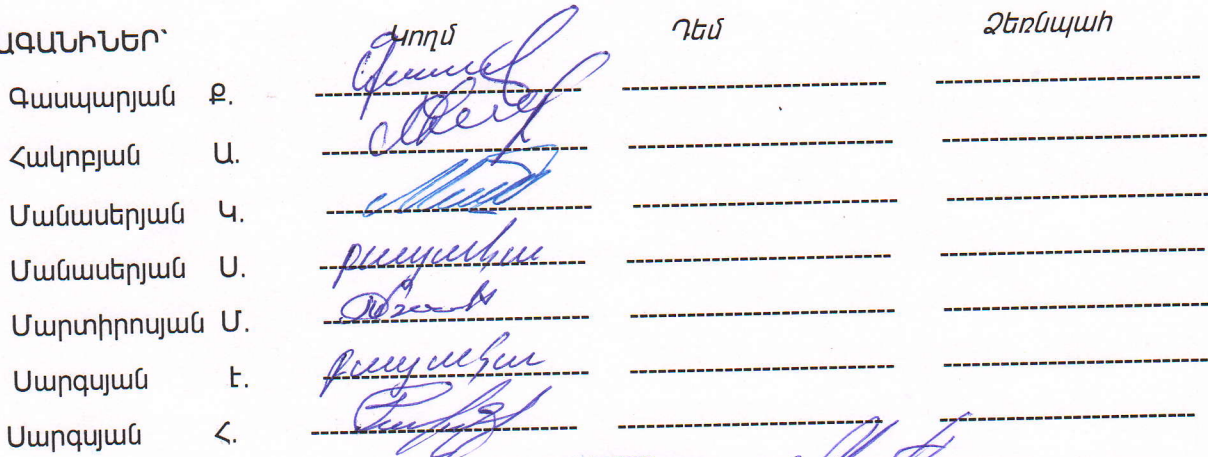 ԱԳԱՆԻՆԵՐ՝ Կողմ Դեմ Ձեռնպահ
Գասպարյան Ք.
Հակոբյան Ա.
Մանասերյան Կ.
Մանասերյան Ս. բացակա
Մարտիրոսյան Մ.
Սարգսյան Է. բացակա
Սարգսյան Հ.